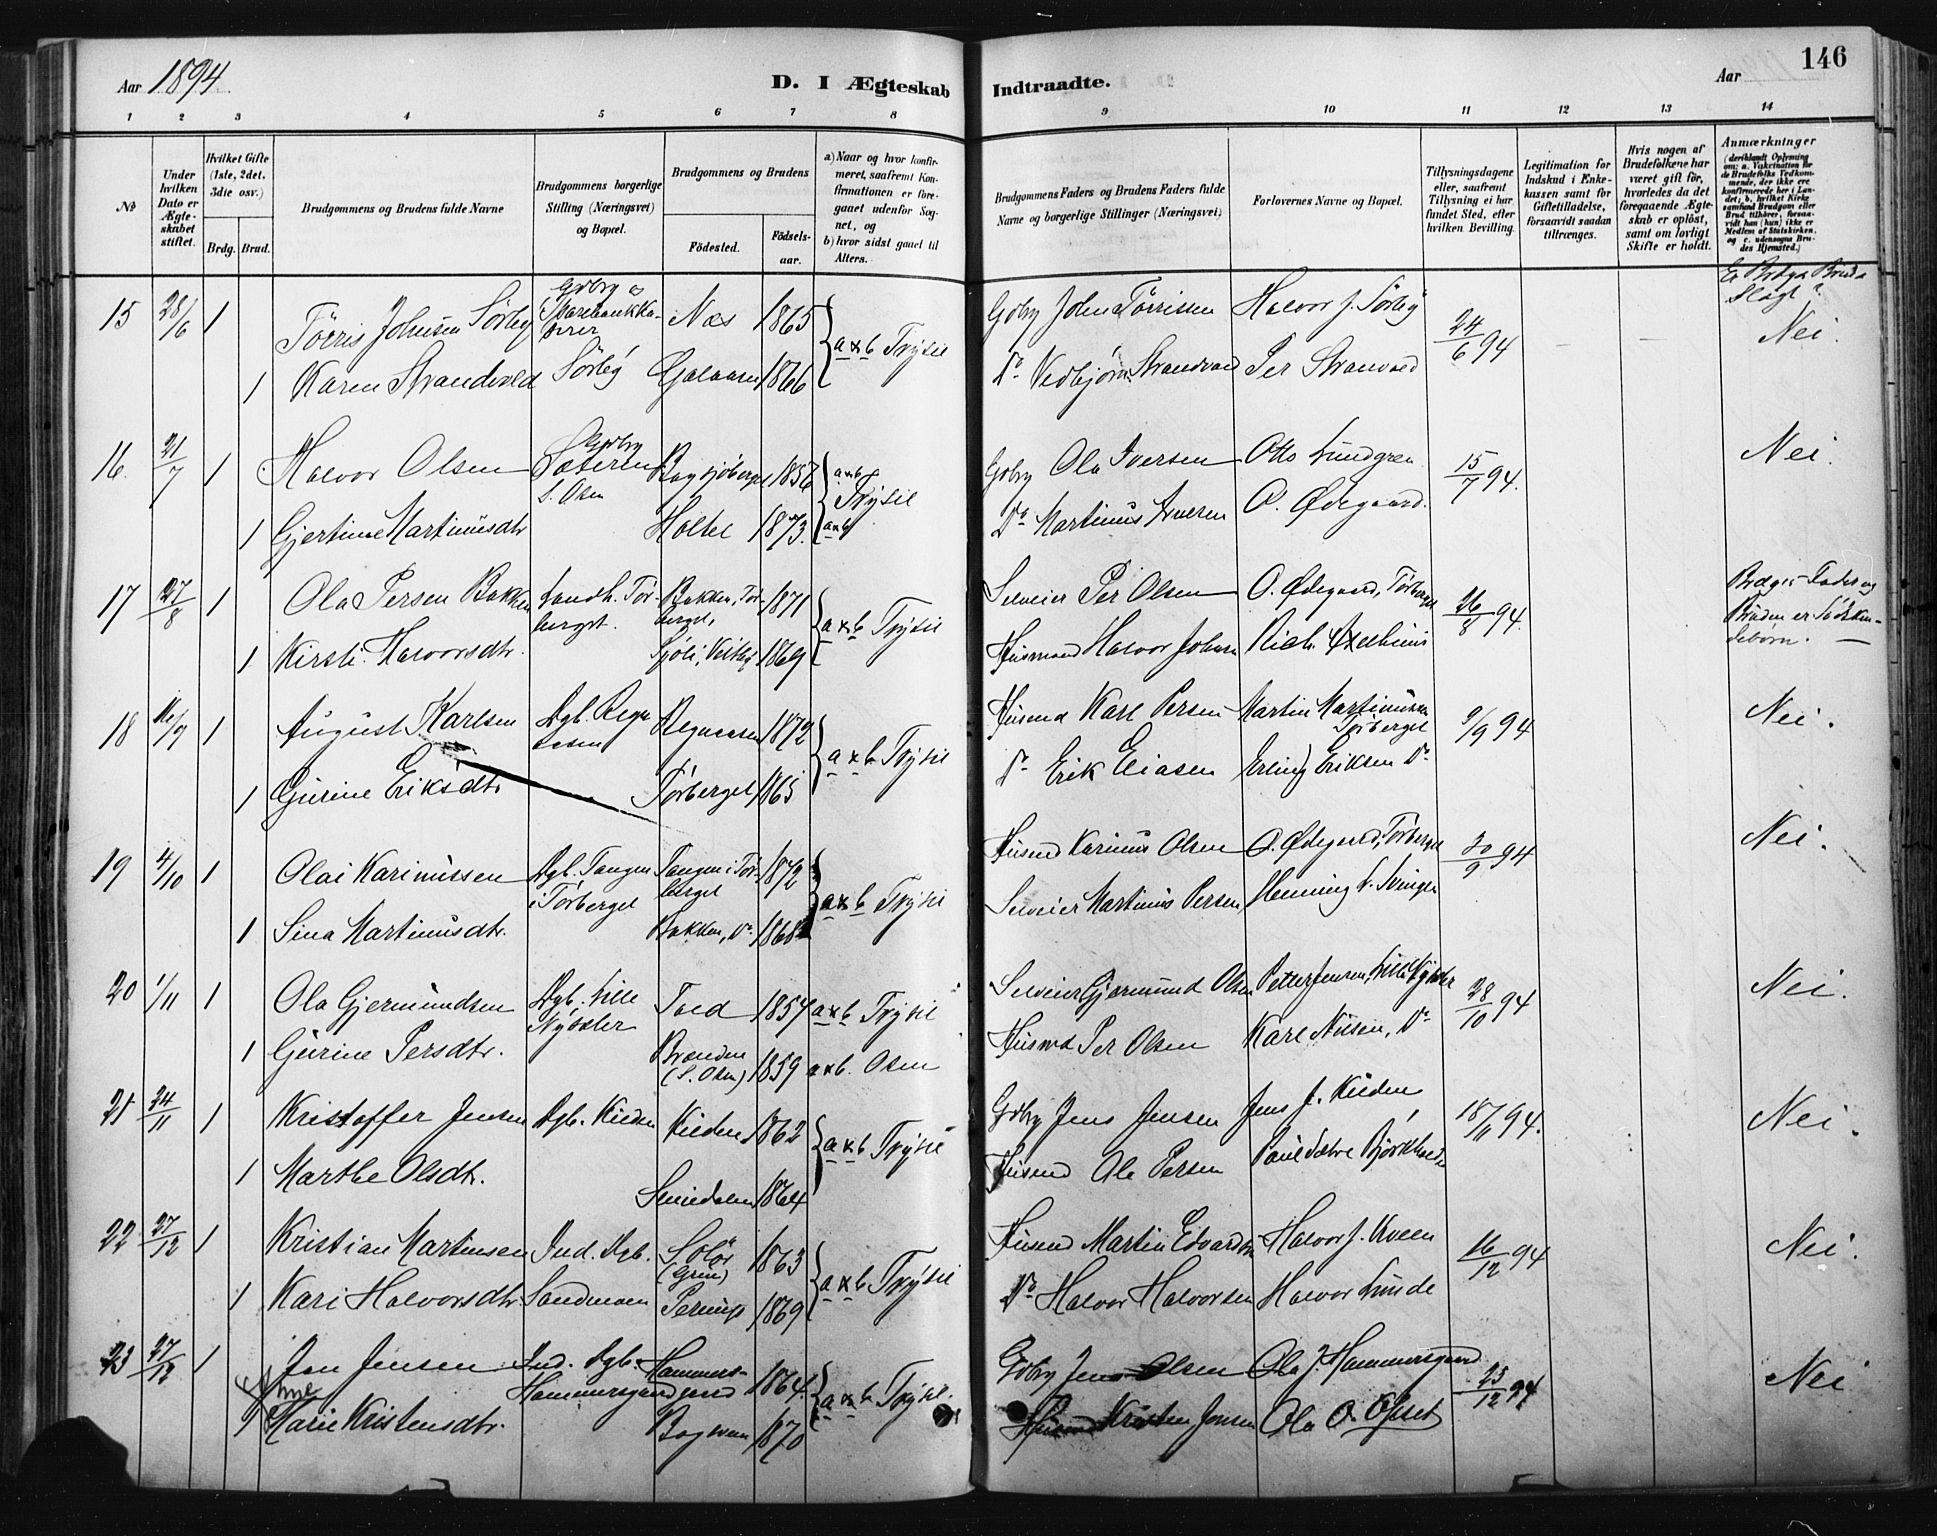 Aar 1894.
D. I Ægteskab Indtraadte.
Aar
146
1 2 3 4 5 6 7 8 9 10 11 12 13 14
No
Under hvilken Dato er Ægte-skabet stiftet.
Hvilket Gifte (1ste, 2det. 3die osv.)
Brdg. Brud.
Brudgommens og Brudens fulde Navne
Brudgommens borgerlige Stilling (Næringsvei) og Bopæl.
Brudgommens og Brudens
Fødested.
Fødsels-aar.
a) Naar og hvor konfir-meret, saafremt Kon-firmationen er fore-gaaet udenfor Sog-net, og
b) hvor sidst gaaet til Alters.
Brudgommens Faders og Brudens Faders fulde Navne og borgerlige Stillinger (Næringsvei)
Forlovernes Navne og Bopæl.
Tillysningsdagene eller, saafremt Tillysning ei har fundet Sted, efter hvilken Bevilling.
Legitimation for Indskud i Enke-kassen samt for Giftetilladelse, forsaavidt saadan tiltrænges.
Hvis nogen af Brudefolkene har været gift før, hvorledes da det foregaaende Ægte-skab er opløst, samt om lovligt Skifte er holdt.
Anmærkninger
(deriblandt Oplysning om: a. Vakcination for de Brudefolks Vedkom-mende, der ikke ere konfirmerede her i Lan-det; b. hvilket Kirke-samfund Brudgom eller Brud tilhører, forsaa-vidt han (hun) ikke er Medlem af Statskirken, og c. udensogns Bru-des Hjemsted.)
15 28/6 1 Törris Johnsen Sörby Gdbrg Næs 1865 a & b Trysil Gdbrg John Törrisen Halvor J. Sörby 24/6 94 Nei.
1 Karen Strandvold Sörby Galaasen 1866 Do Vedbjörn Per
16. 21/7 1 Halvor Olsen Gdbrg Sæteren S. Osen 1856 a & b Trysil Gdbrg Ola Iversen Otto Lundgren 15/7 94. Nei.
1 Gjertine Martinusdtr Holtet 1873. a & b Do Martinus Iversen O. Ødegaard.
17 27/8 1 Ola Persen Bakken Landh. Tör-berget. Bakken, Tör-berget, 1871 a & b Trysil Selveier Per Olsen O. Ødegaard, Törberget 26/8 94. Brdges Fader og Bruden er Södsken-debörn.
1 Kirsti Halvorsdtr. 1869 Husmand Halvor Johnsen Rich.
18 16/9 1 August Karlsen Dgb. 1872 a & b Trysil Husmd Karl Persen Martin Martinusen Törberget 9/9 94 Nei.
1 Gurine Eriksdtr. Törberget 1865 Do Erik Eliasen Erling Eriksen Do
19 4/10 1 Olai Karinussen Dgb. Tangen i Törberget Tangen i Tör-berget 1872 a & b Trysil Husmd Karinus Olsen O. Ødegaard, Törberget 30/9 94 Nei.
1 Sina Martinusdtr. Bakken, Do 1868 Selveier Martinus Persen Henning
20 1/11 1 Ola Gjermundsen Dgb. Lille Nysæter 1854 a & b Trysil Selveier Gjermund Olsen Petter Jensen, Lille Nysæter 28/10 94 Nei.
1 Gurine Persdtr. Brænden (S. Osen) 1859 a & b. Osen Husmd Per Olsen Karl Nilsen, Do
21 24/11 1 Kristoffer Jensen Dgb. Kilden Kilden 1862 a & b Trysil Gdbrg Jens Jensen Jens J. Kilden 18/11 94. Nei.
1 Marthe Olsdtr. 1864 Husmd Ole Persen
22 27/12 1 Kristian Martinsen Ind. Dgb. Solör (Grue) 1863 a & b Trysil Husmd Martin Edvardsen Halvor J. Kveen 16/12 94 Nei.
1 Kari Halvorsdtr. Sandmoen 1869 Do Halvor Halvorsen Halvor Lunde
23 27/12 1 Jon Jensen Ind. Dgb. Hammersgaard Hammers-gaard 1864. a & b Trysil. Gdbrg Jens Olsen Ola J. Hammersgaard 23/12 94 Nei
1 Marie Kristensdtr. 1870 Kristen Jonsen Ola O. Opset